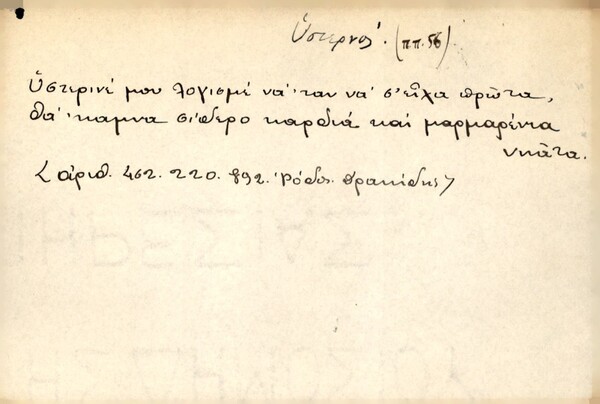 Ὑστερνός. (π.π. 56).
Ὑστερινέ μου λογισμέ νά 'ταν νά σ' εἶχα πρῶτα,
θά 'καμνα σίδερο καρδιά καί μαρμαρένια
νιᾶτα.
<ἀριθ. 462. 220. 892. Ῥόδος. Βρακίδης>